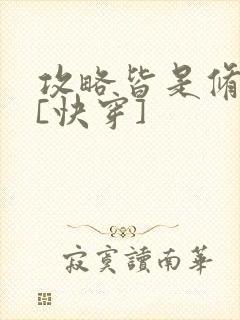 攻略皆是
[快穿]
寂寞讀南華